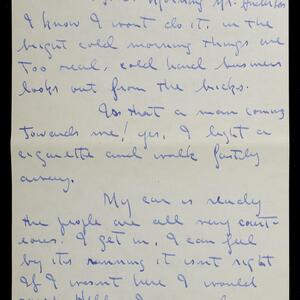 Morning Mr. Anderson
I know I wont do it, in the
bright cold morning things are
too real, cold hard business
looks out from the bricks.
Is that a man coming
towards me! yes, I light a
cigarette and walk fastly
away.
My car is ready
the people are all very court-
eous. I get in, I can feel
by its running it isnt right
If I wasnt here I would